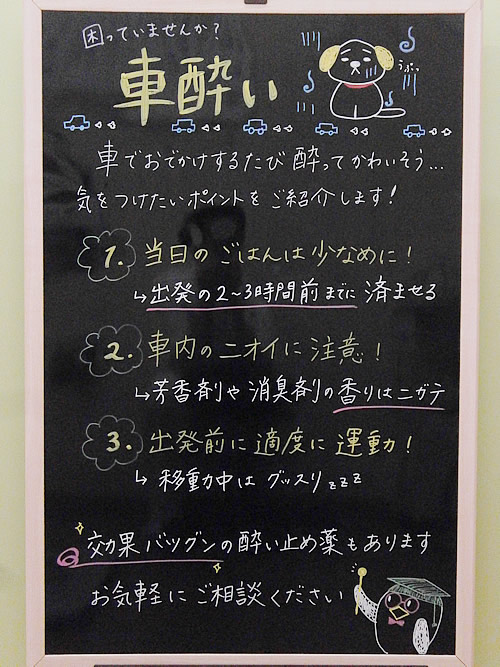 困っていませんか?
車酔い
うぷっ
車でおでかけするたび酔ってかわいそう...
気をつけたいポイントをご紹介します!
1. 当日のごはんは少なめに!
↳出発の2~3時間前までに済ませる
2. 車内のニオイに注意!
↳芳香剤や消臭剤の香りはニガテ
3. 出発前に適度に運動!
↳移動中はグッスリzzz
効果バツグンの酔い止め薬もあります
お気軽にご相談ください